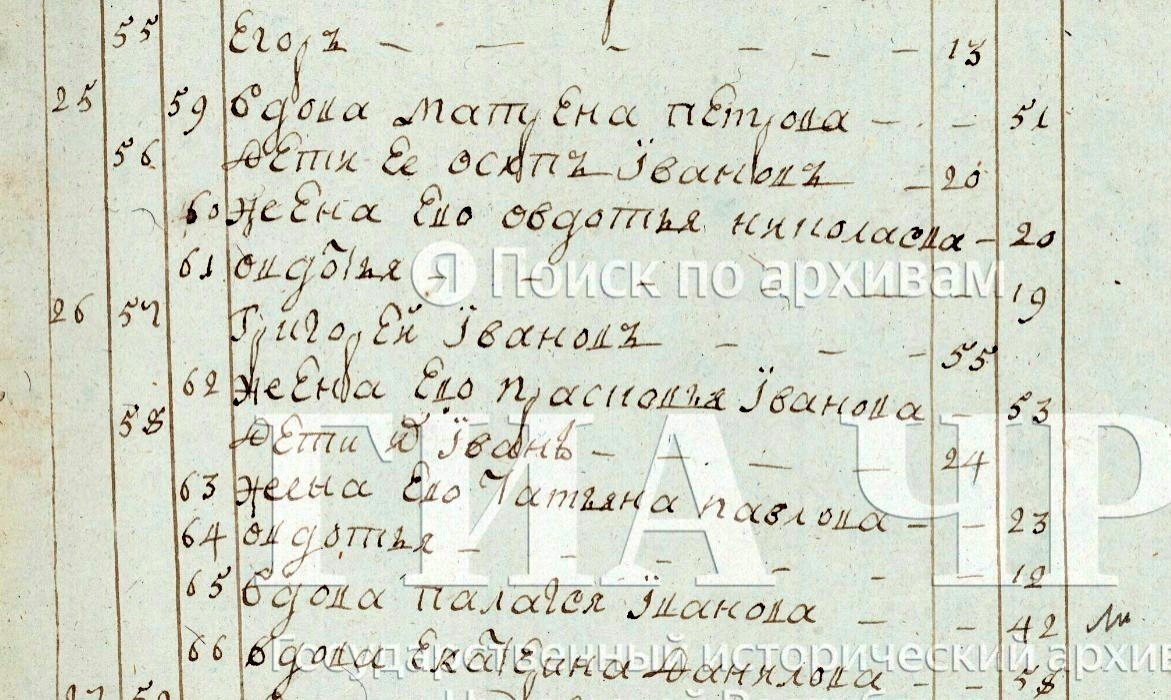 55 Егоръ — — — — — — 13
25 59 вдова матрена петрова — — 51
56 дети ее осипъ Їванов — 20
60 жена ево овдотья николаева — 20
61 овдотья — — — — 19
26 57 григорей Ївановъ — — — 55
62 жена ево прасковья Їванова — 53
58 дети Їванъ — — — — 24
63 жена ево татьяна павлова — — 23
64 овдотья — — — — — 12
65 вдова палагея Їванова — — 42
66 вдова екатерина данилова — — 58
Я Поиск по архивам
ГИА ЧР
Государственный исторический архив